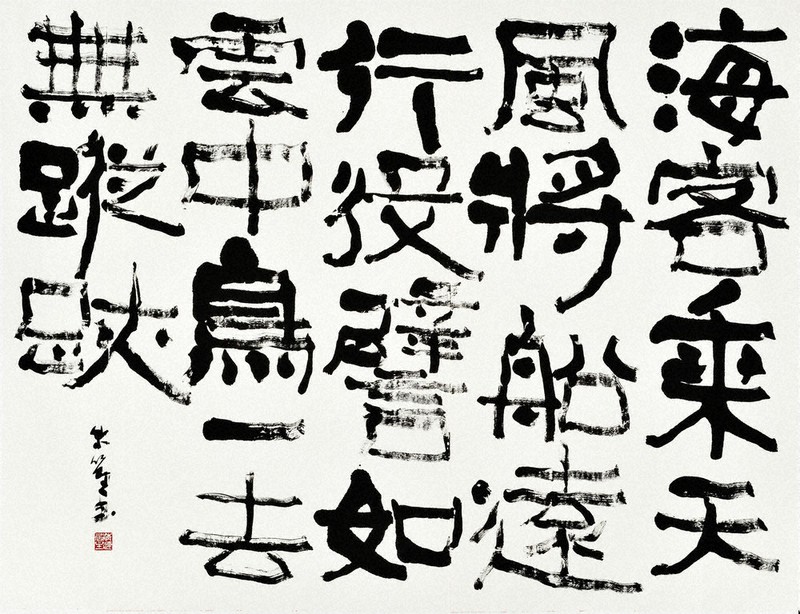 海客乘天
風將船遠
行役譬如
雲中鳥一去
無蹤跡